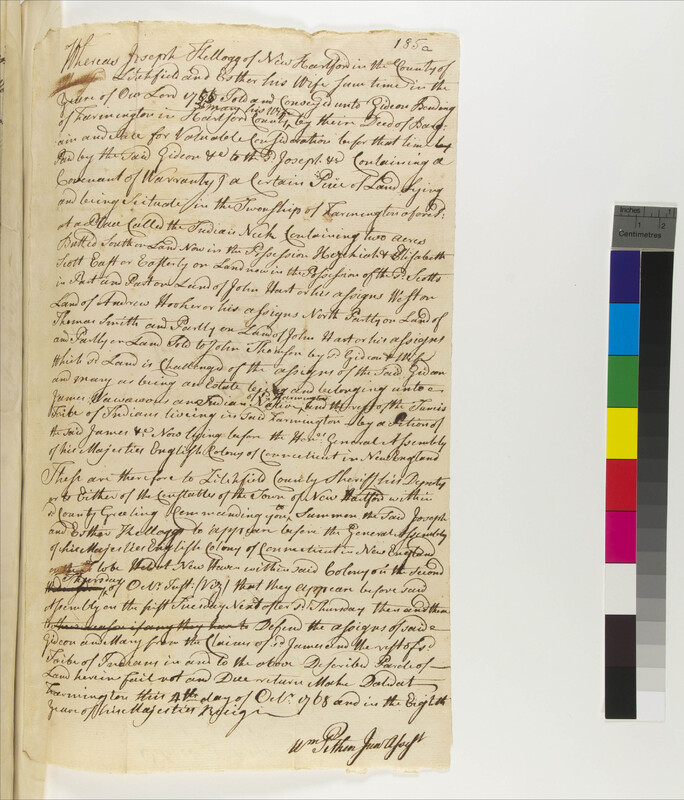 185a
Whereas Joseph Kellogg of New Hartford in the County of
Litchfield and Esther his Wife sum time in the
Year of Our Lord 1755 Sold and Conveyed unto Gideon Bending
& Mary his Wife
of Farmington in Hartford County by their Deed of Barg-
ain and Sale for Valuable Consideration before that time
Paid by the Said Gideon &c to the sd Joseph &c Containing a
Covenant of Warranty of a Certain Piece of Land lying
and being Scituate in the Township of Farmington aforesd:
at a Place Called the Indian Neck Containing two acres
Butted South on Land Now in the Possession Hezekiah & Elisabeth
Scott East or Easterly on Land now in the Possession of the sd Scotts
in Part and Part on Land of John Hart or his assigns West on
Land of Andrew Hooker or his assigns North Partly on Land of
Thomas Smith and Partly on Land of John Hart or his assigns
and Partly on Land Sold to John Thomson by sd Gideon & Wife
Which sd Land is Challenged of the assigns of the Said Gideon
and Mary as being an Estate being and belonging unto
James Wawawous an Indian of sd Farmington Nation, and the rest of the Tunxis
Tribe of Indians liveing in Said Farmington by a Petition of
the Said James &c Now lying before the Honbl General Assembly
of his Majesties English Colony of Connecticut in New England
These are therefore to Litchfield County Sheriff his Deputy
or to Either of the Constables of the Town of New Hartford within
sd County Greeting Commanding you to Summon the Said Joseph
and Esther Kellogg to appear before the General Assembly
of his Majesties English Colony of Connecticut in New England
to be Held at New Haven within said Colony on the Second
Thursday of Octr Inst: (Viz) that they appear before said
Assembly on the first Tuesday Next after sd Thursday then and there
to their reason if any they have to Defend the assigns of said
Gideon and Mary from the Claims of sd James and the rest of sd
Tribe of Indians in and to the above Described Parcle of
Land herein fail not and Due return Make Dated at
Farmington this 4th day of Octr 1768 and in the Eighth
Year of his Majesties Reign
Wm Pitkin Junr Assist